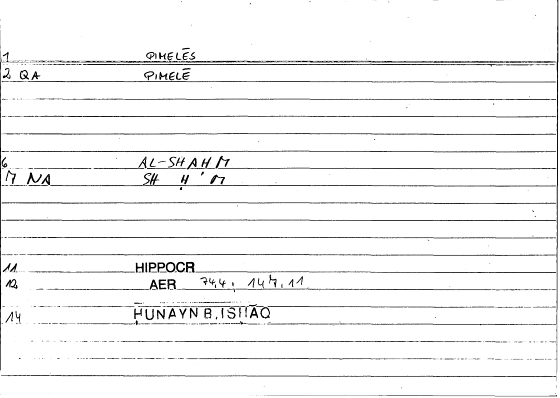 1 QIMELĒS
2 QA QIMELĒ
6 AL-SHAHM
7 NA SH Ḥ ' M
11 HIPPOCR
12 AER 74,4; 147,11
14 ḤUNAYN B. ISḤĀQ